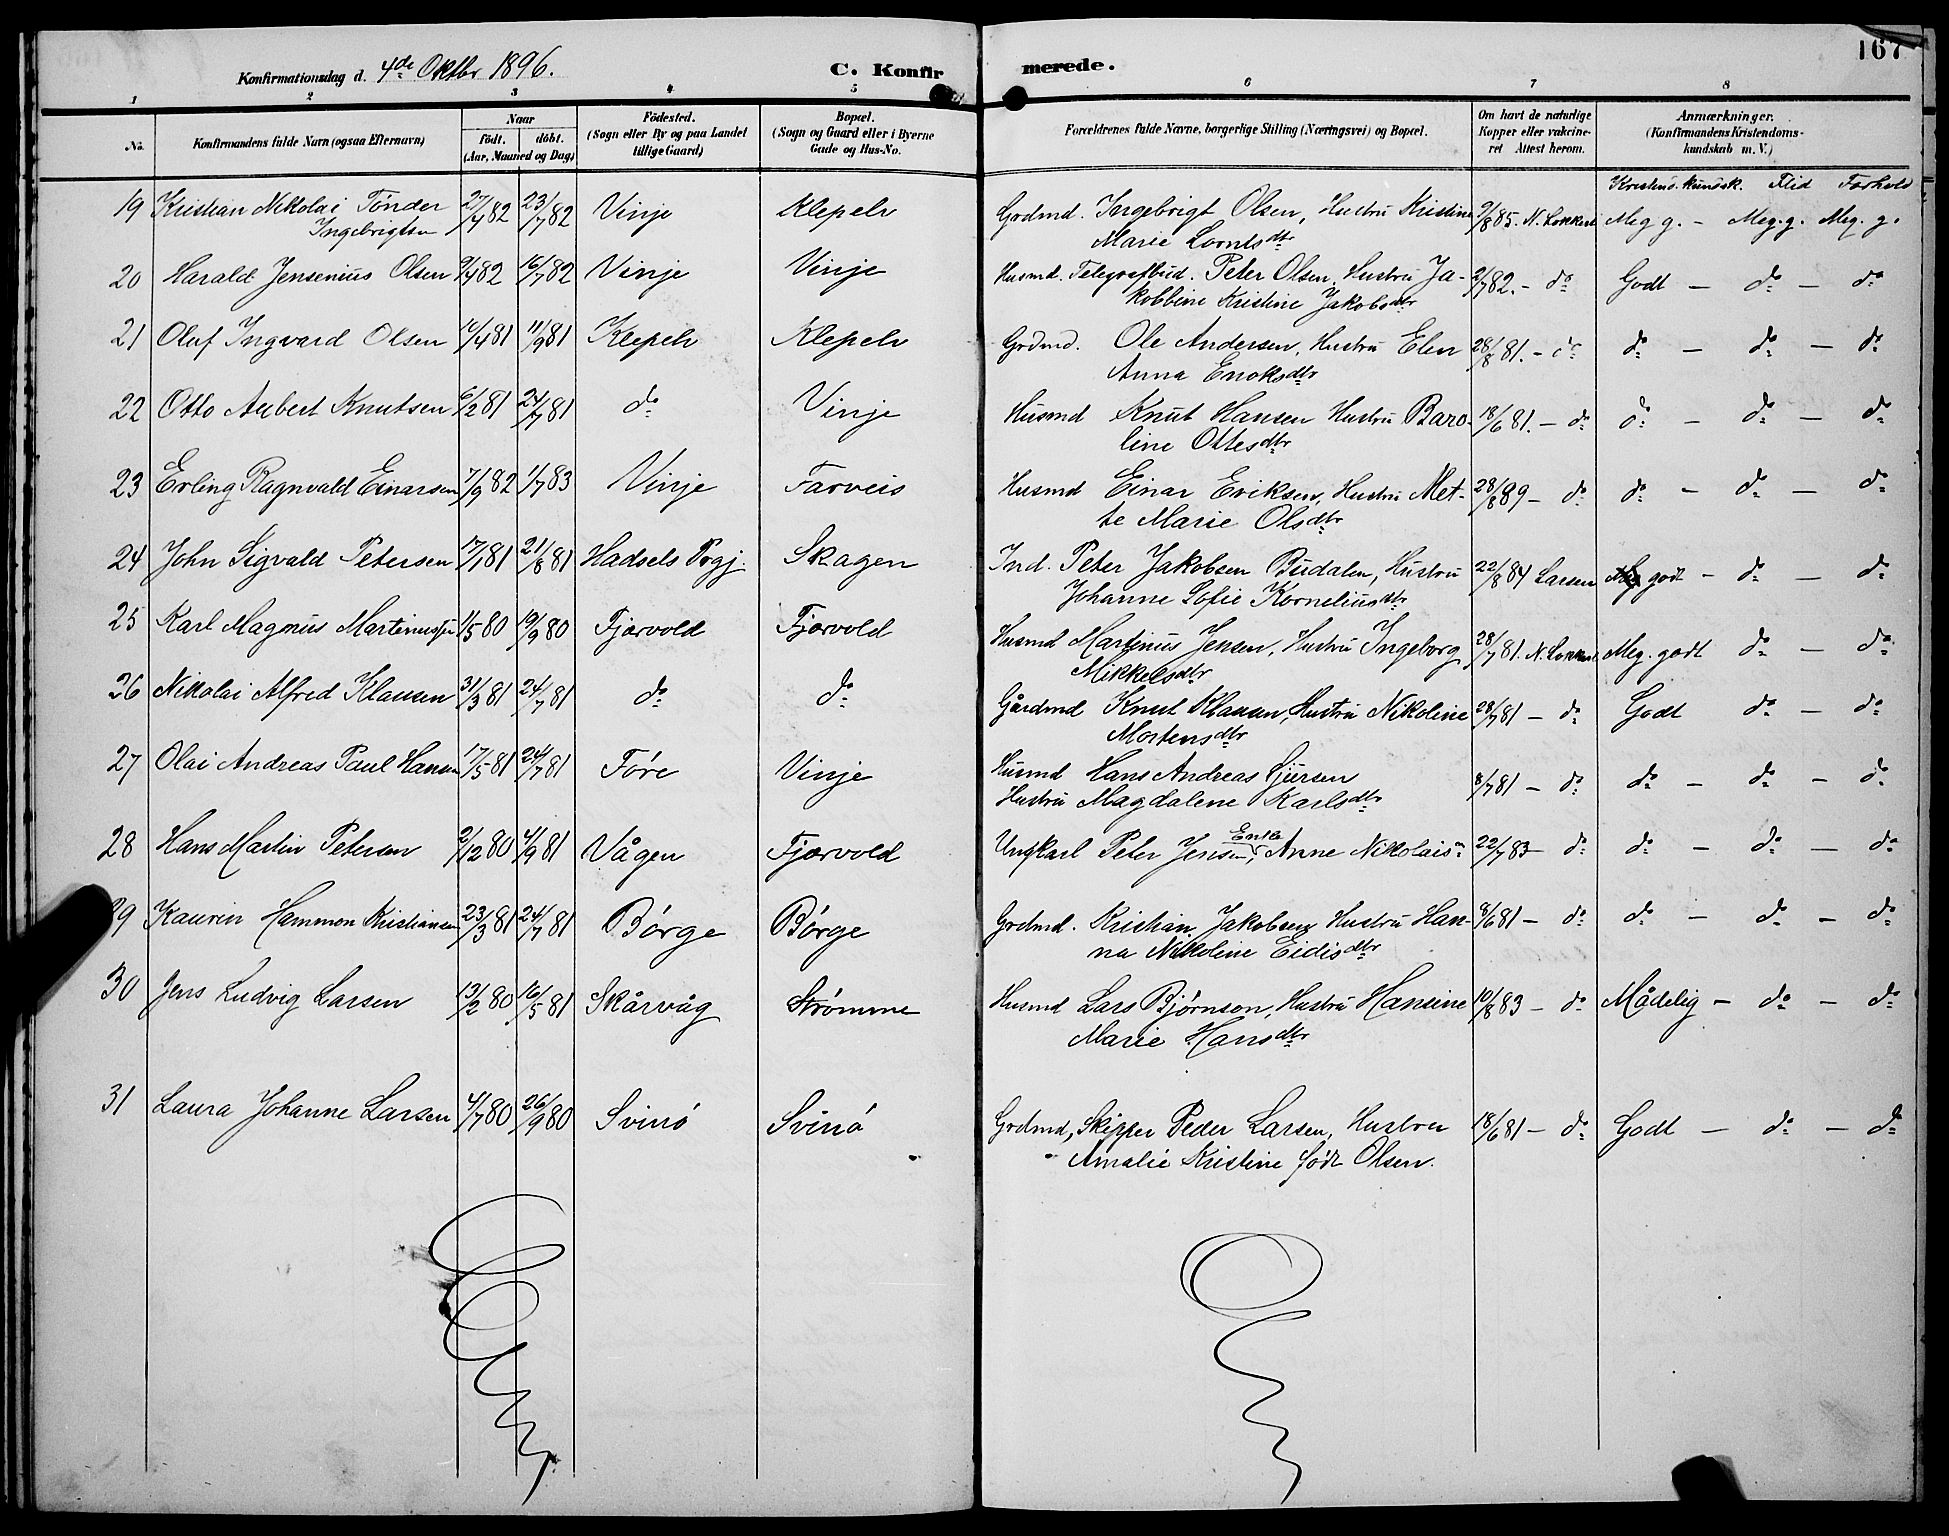 167
Konfirmationsdag d. 4de Oktbr 1896. C. Konfirmerede.
1 2 3 4 5 6 7 8
No. Konfirmandens fulde Navn (ogsaa Efternavn) Naar födt. döbt. (Aar, Maaned og Dag) Födested. (Sogn eller By og paa Landet tillige Gaard) Bopæl. (Sogn og Gaard eller i Byerne Gade og Hus-No. Forældrenes fulde Navne, borgerlige Stilling (Næringsvei) og Bopæl. Om havt de naturlige Kopper eller vakcineret Attest herom. Anmærkninger. (Konfirmandens Kristendomskundskab m. V.)
Kristend. kundsk. Flid Forhold
19 Kristian Nikolai Tönder 27/4 82 23/7 82 Vinje Klepelv Grdmd. Ingebrigt Olsen, Hustru Kristine 9/8 85. N. Lokkert Meg g. – Meg. g. Meg. g.
Ingebrigtsen Marie Lorntsdtr
20 Harald Jensenius Olsen 9/4 82 16/7 82 Vinje Vinje Husmd. Telegrafbud. Peter Olsen, Hustru Ja- 2/7 82. – do Godt – do – do
kobbine Kristine Jakobsdtr
21 Oluf Ingvard Olsen 14/4 81 11/9 81 Klepelv Klepelv Grdmd. Ole Andersen, Hustru Elen 28/8 81. – do do – do – do
Anna Enoksdtr
22 Otto Aubert Knutsen 6/2 81 24/7 81 do Vinje Husmd Knut Hansen Hustru Baro- 18/6 81. – do do – do – do
line Ottesdtr
23 Erling Ragnvald Einarsen 7/9 82 1/7 83 Vinje Farveis Husmd Einar Eriksen, Hustru Met- 28/8 89 – do do – do – do
te Marie Olsdtr
24 John Sigvald Petersen 17/1 81 21/8 81 Hadsels Prgj. Skagen Ind. Peter Jakobsen Budalen, Hustru 22/8 84 Larsen godt – do – do
Johanne Sofie Korneliusdtr
25 Karl Magnus Martinussen 1/5 80 19/9 80 Fjærvold Fjærvold Husmd Martinus Jensen, Hustru Ingeborg 28/7 81. N. Lokkert Meg. godt do – do
Mikkelsdtr
26 Nikolai Alfred Klausen 31/3 81 24/7 81 do do Gårdmd Knut Klausen, Hustru Nikoline 28/7 81 – do Godt do – do
Mortensdtr
27 Olai Andreas Paul Hansen 17/5 81 24/7 81 Före Vinje Husmd Hans Andreas Sjursen 8/7 81 – do do – do – do
Hustru Magdalene Karlsdtr
28 Hans Martin Petersen 2/12 80 4/9 81 Vågen Fjærvold Ungkarl Peter Jensen, Enke Anne Nikolais 22/7 83 – do do – do – do
29 Kaurin Hammon Kristiansen 23/3 81 24/7 81 Börge Börge Grdmd. Kristian Jakobsen Hustru Han- 8/6 81 – do do – do – do
na Nikoline Eidisdtr
30 Jens Ludvig Larsen 13/2 80 16/5 81 Skårvåg Strømme Husmd Lars Bjørnson, Hustru Hansine 10/8 83 – do Mådelig – do – do
Marie Hansdtr
31 Laura Johanne Larsen 4/7 80 26/9 80 Svinö Svinö Grdmd, Skipper Peder Larsen, Hustru 18/6 81 – do Godt – do – do
Amalie Kristine födt Olsen.